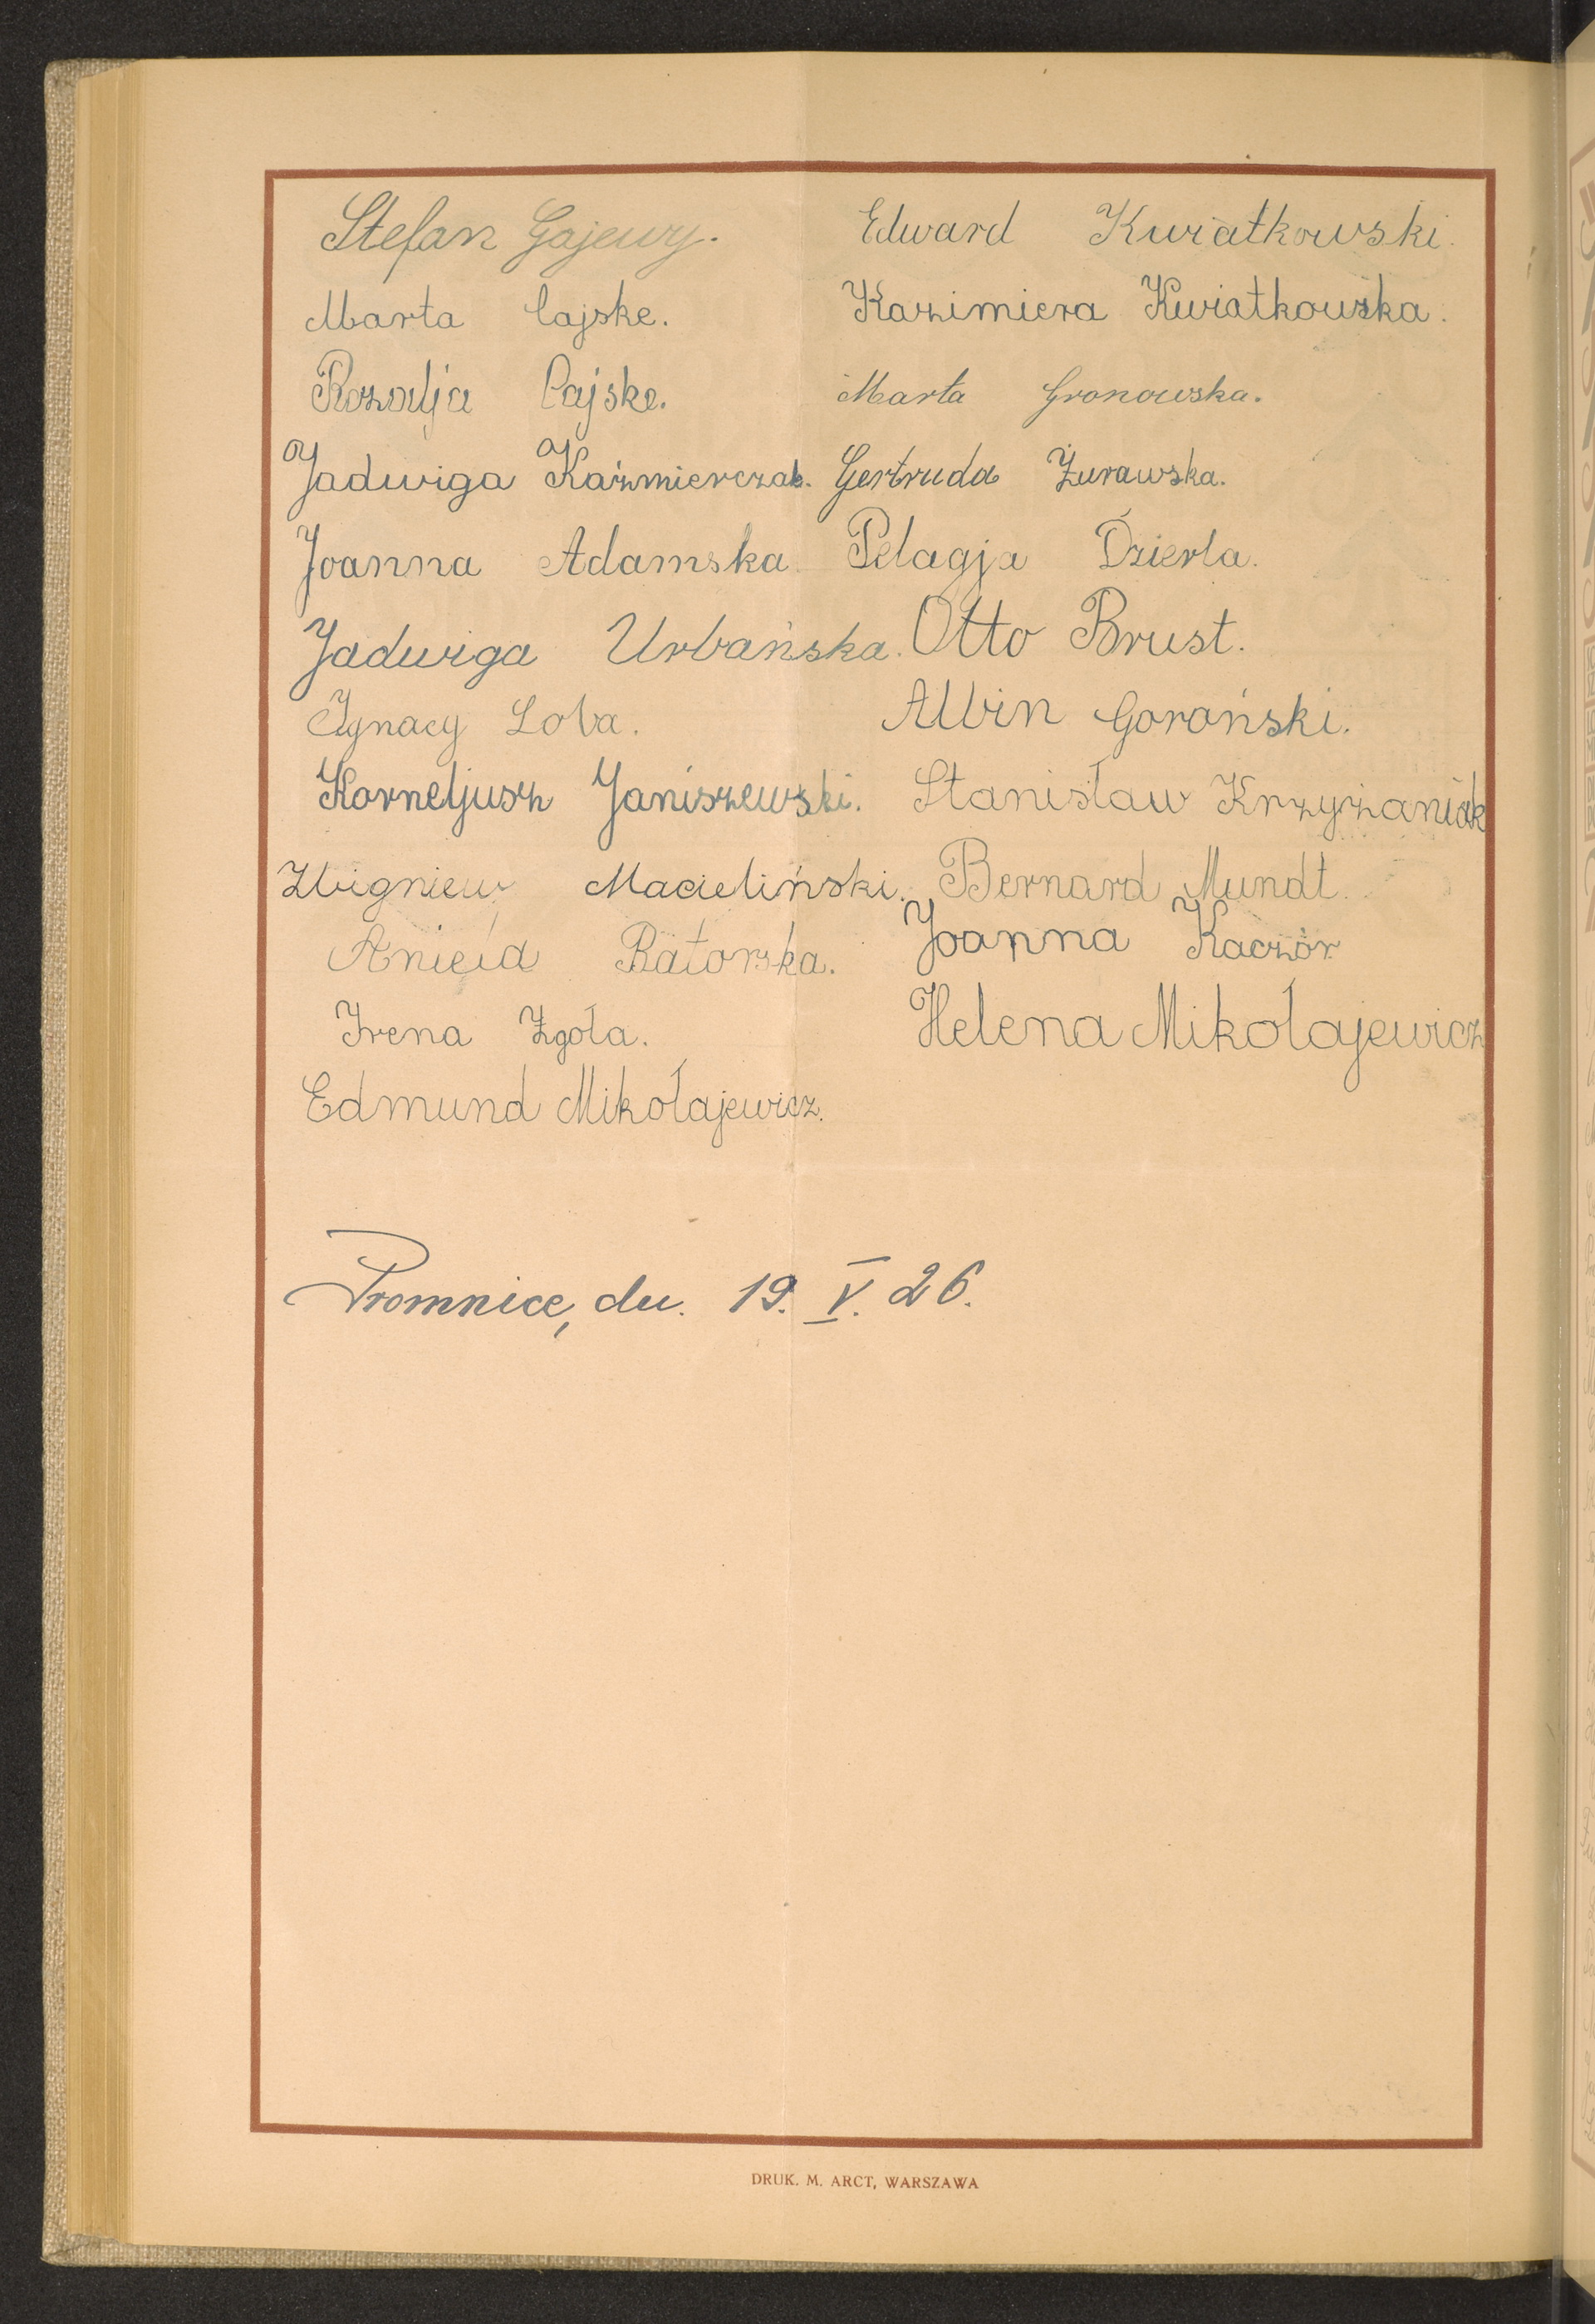 Stefan Gajewy. Edward Kwiatkowski.
Marta Cajske. Kazimiera Kwiatkowska.
Rozalja Cajske. Marta Gronowska.
Jadwiga Kaźmierczak. Gertruda Żurawska.
Joanna Adamska. Pelagja Dzierla.
Jadwiga Urbańska. Otto Brust.
Ignacy Loba. Albin Gorański.
Korneljusz Janiszewski. Stanisław Krzyżaniak
Zbigniew Macieliński. Bernard Mundt.
Aniela Ratorska. Joanna Kaczór
Irena Zgoła. Helena Mikołajewicz
Edmund Mikołajewicz.
Promnice, dn. 19. V. 26.
DRUK. M. ARCT, WARSZAWA